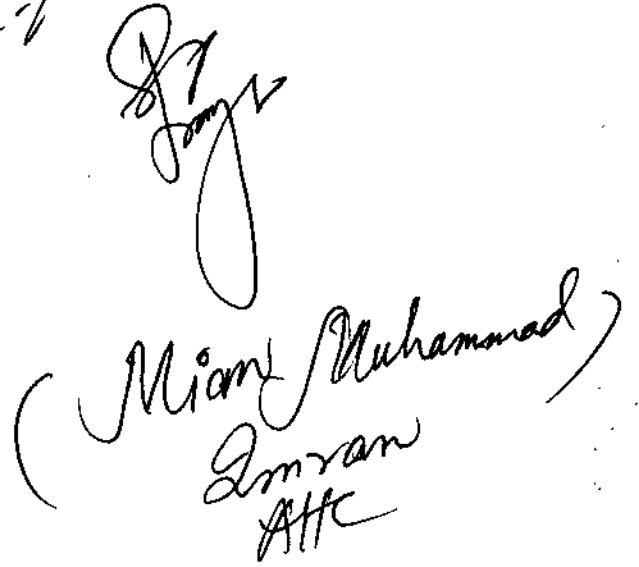 (Mian Muhammad)
Imran
AHC